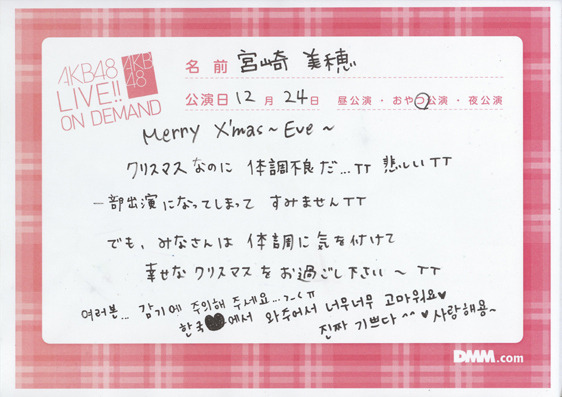 AKB48
LIVE!!
ON DEMAND
AKB
48
名前 宮崎 美穂
公演日 12月 24日 昼公演・おやつ公演・夜公演
Merry X'mas ~ Eve ~
クリスマスなのに 体調不良だ...TT 悲しいTT
一部出演になってしまって すみませんTT
でも、みなさんは 体調に気を付けて
幸せなクリスマスをお過ごし下さい~ TT
여러분... 감기에 주의해 주세요...
한국♥에서 와주어서 너무너무 고마워요♥
진짜 기쁘다^^ ♥ 사랑해용~
DMM.com